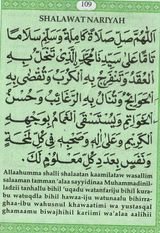 109
SHALAWAT NARIYAH
اَللّٰهُمَّ صَلِّ صَلَاةً كَامِلَةً وَسَلِّمْ سَلَامًا
تَامًّا عَلَى سَيِّدِنَا مُحَمَّدِ الَّذِي تَنْحَلُّ بِهِ
الْعُقَدُ وَتَنْفَرِجُ بِهِ الْكُرَبُ وَتُقْضَى بِهِ
الْحَوَائِجُ وَتُنَالُ بِهِ الرَّغَائِبُ وَحُسْنُ
الْخَوَاتِمِ وَيُسْتَسْقَى الْغَمَامُ بِوَجْهِهِ
الْكَرِيمِ وَعَلَى آلِهِ وَصَحْبِهِ فِي كُلِّ لَمْحَةٍ
وَنَفَسٍ بِعَدَدِ كُلِّ مَعْلُومٍ لَكَ
Allaahumma shalli shalaatan kaamilataw wasallim
salaaman taamman 'alaa sayyidinaa Muhammadinil-
ladzii tanhallu bihil 'uqadu watanfariju bihil kura-
bu watuqdla bihil hawaa-iju watunaalu bihirra-
ghaa-ibu wahusnul khawaatimi wa yustasqal
ghamaamu biwajhihil kariimi wa'alaa aalihii